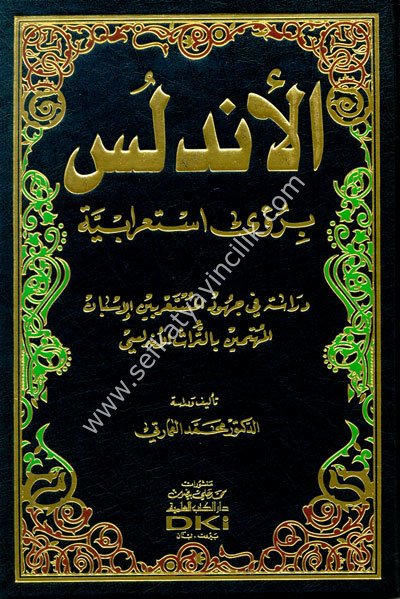 الأندلُس
برؤى استعرابية
دراسة في جهود المستعربين الإسبان
المهتمين بالتراث الأندلسي
تأليف ودراسة
الدكتور محمد العمارتي
منشورات
محمد علي بيضون
دار الكتب العلمية
DKi
بيروت - لبنان
www.serhatyayincilik.com